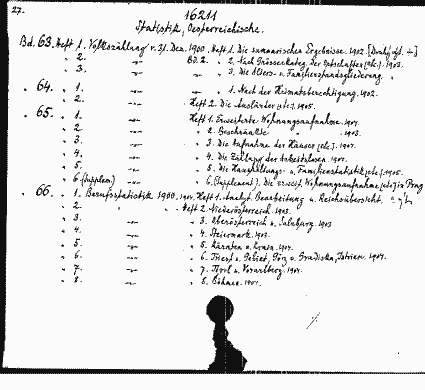 27.
16211
Statistik, Oesterreichische.
Bd. 63. Heft 1. Volkszählung v. 31. Dez. 1900. Heft 1. Die summarischen Ergebnisse. 1902.
" 2. " Bd. 2. " 2. Nach Grössenkateg. der Ortschaften [etc.]. 1903.
" 3. " " 3. Die Alters- u. Familienstandsgliederung. "
" 64. " 1. " " 1. Nach der Heimatsberechtigung. 1902.
" 2. " Heft 2. Die Ausländer [etc.]. 1905.
" 65. " 1. " Heft 1. Erweiterte Wohnungsaufnahme. 1904.
" 2. " " 2. Beschränkte " 1903.
" 3. " " 3. Die Aufnahme der Häuser [etc.]. 1904.
" 4. " " 4. Die Zählung der Arbeitslosen. 1904.
" 5. " " 5. Die Haushaltungs- u. Familienstatistik [etc.]. 1905.
" 6. (Supplem.) " " 6. (Supplement). Die erweit. Wohnungsaufnahme [etc.] in Prag
" 66. " 1. Berufsstatistik 1900. Heft 1. Analyt. Bearbeitung u. Reichsübersicht.
" 2. " Heft 2. Niederösterreich. 1903.
" 3. " " 3. Oberösterreich u. Salzburg. 1903
" 4. " " 4. Steiermark. 1903.
" 5. " " 5. Kärnten u. Krain. 1904.
" 6. " " 6. Triest u. Gebiet, Görz u. Gradiska, Istrien. 1904.
" 7. " " 7. Tirol u. Vorarlberg. 1904.
" 8. " " 8. Böhmen. 1904.